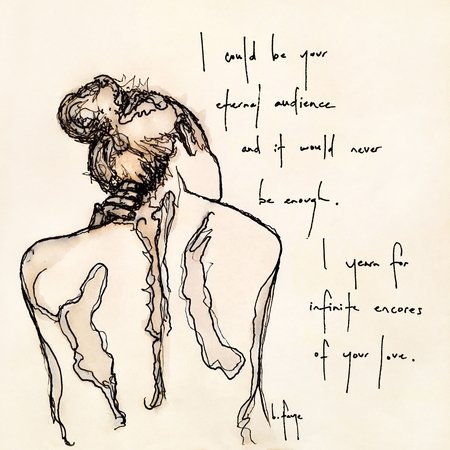 I could be your
eternal audience
and it would never
be enough.
I yearn for
infinite encores
of your love.
b. faye